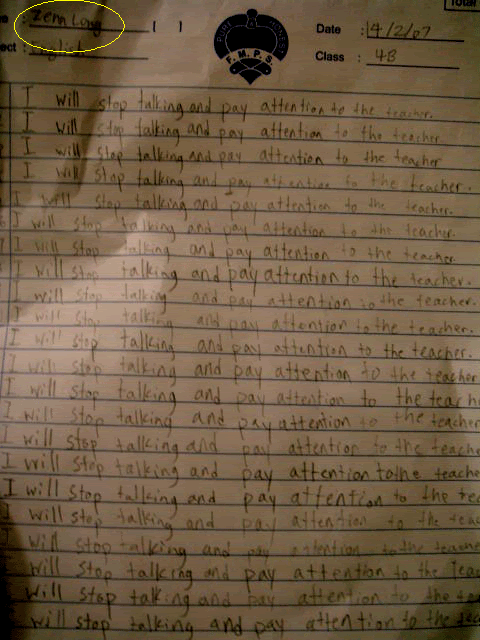 Total
: Zenn Long ( ) Date : 4/2/07
ect : English Class : 4B
F.M.P.S.
I will stop talking and pay attention to the teacher.
I will stop talking and pay attention to the teacher.
I will stop talking and pay attention to the teacher
I will stop talking and pay attention to the teacher.
I will stop talking and pay attention to the teacher.
I will stop talking and pay attention to the teacher.
I will stop talking and pay attention to the teacher.
I will stop talking and pay attention to the teacher.
I will stop talking and pay attention to the teacher.
I will stop talking and pay attention to the teacher.
I will stop talking and pay attention to the teacher.
I will stop talking and pay attention to the teacher
I will stop talking and pay attention to the teach
I will stop talking and pay attention to the teacher
I will stop talking and pay attention to the teacher
I will stop talking and pay attention to the teache
I will stop talking and pay attention to the tea
I will stop talking and pay attention to the teac
I will stop talking and pay attention to the teache
I will stop talking and pay attention to the teac
I will stop talking and pay attention to the tea
I will stop talking and pay attention to the tea